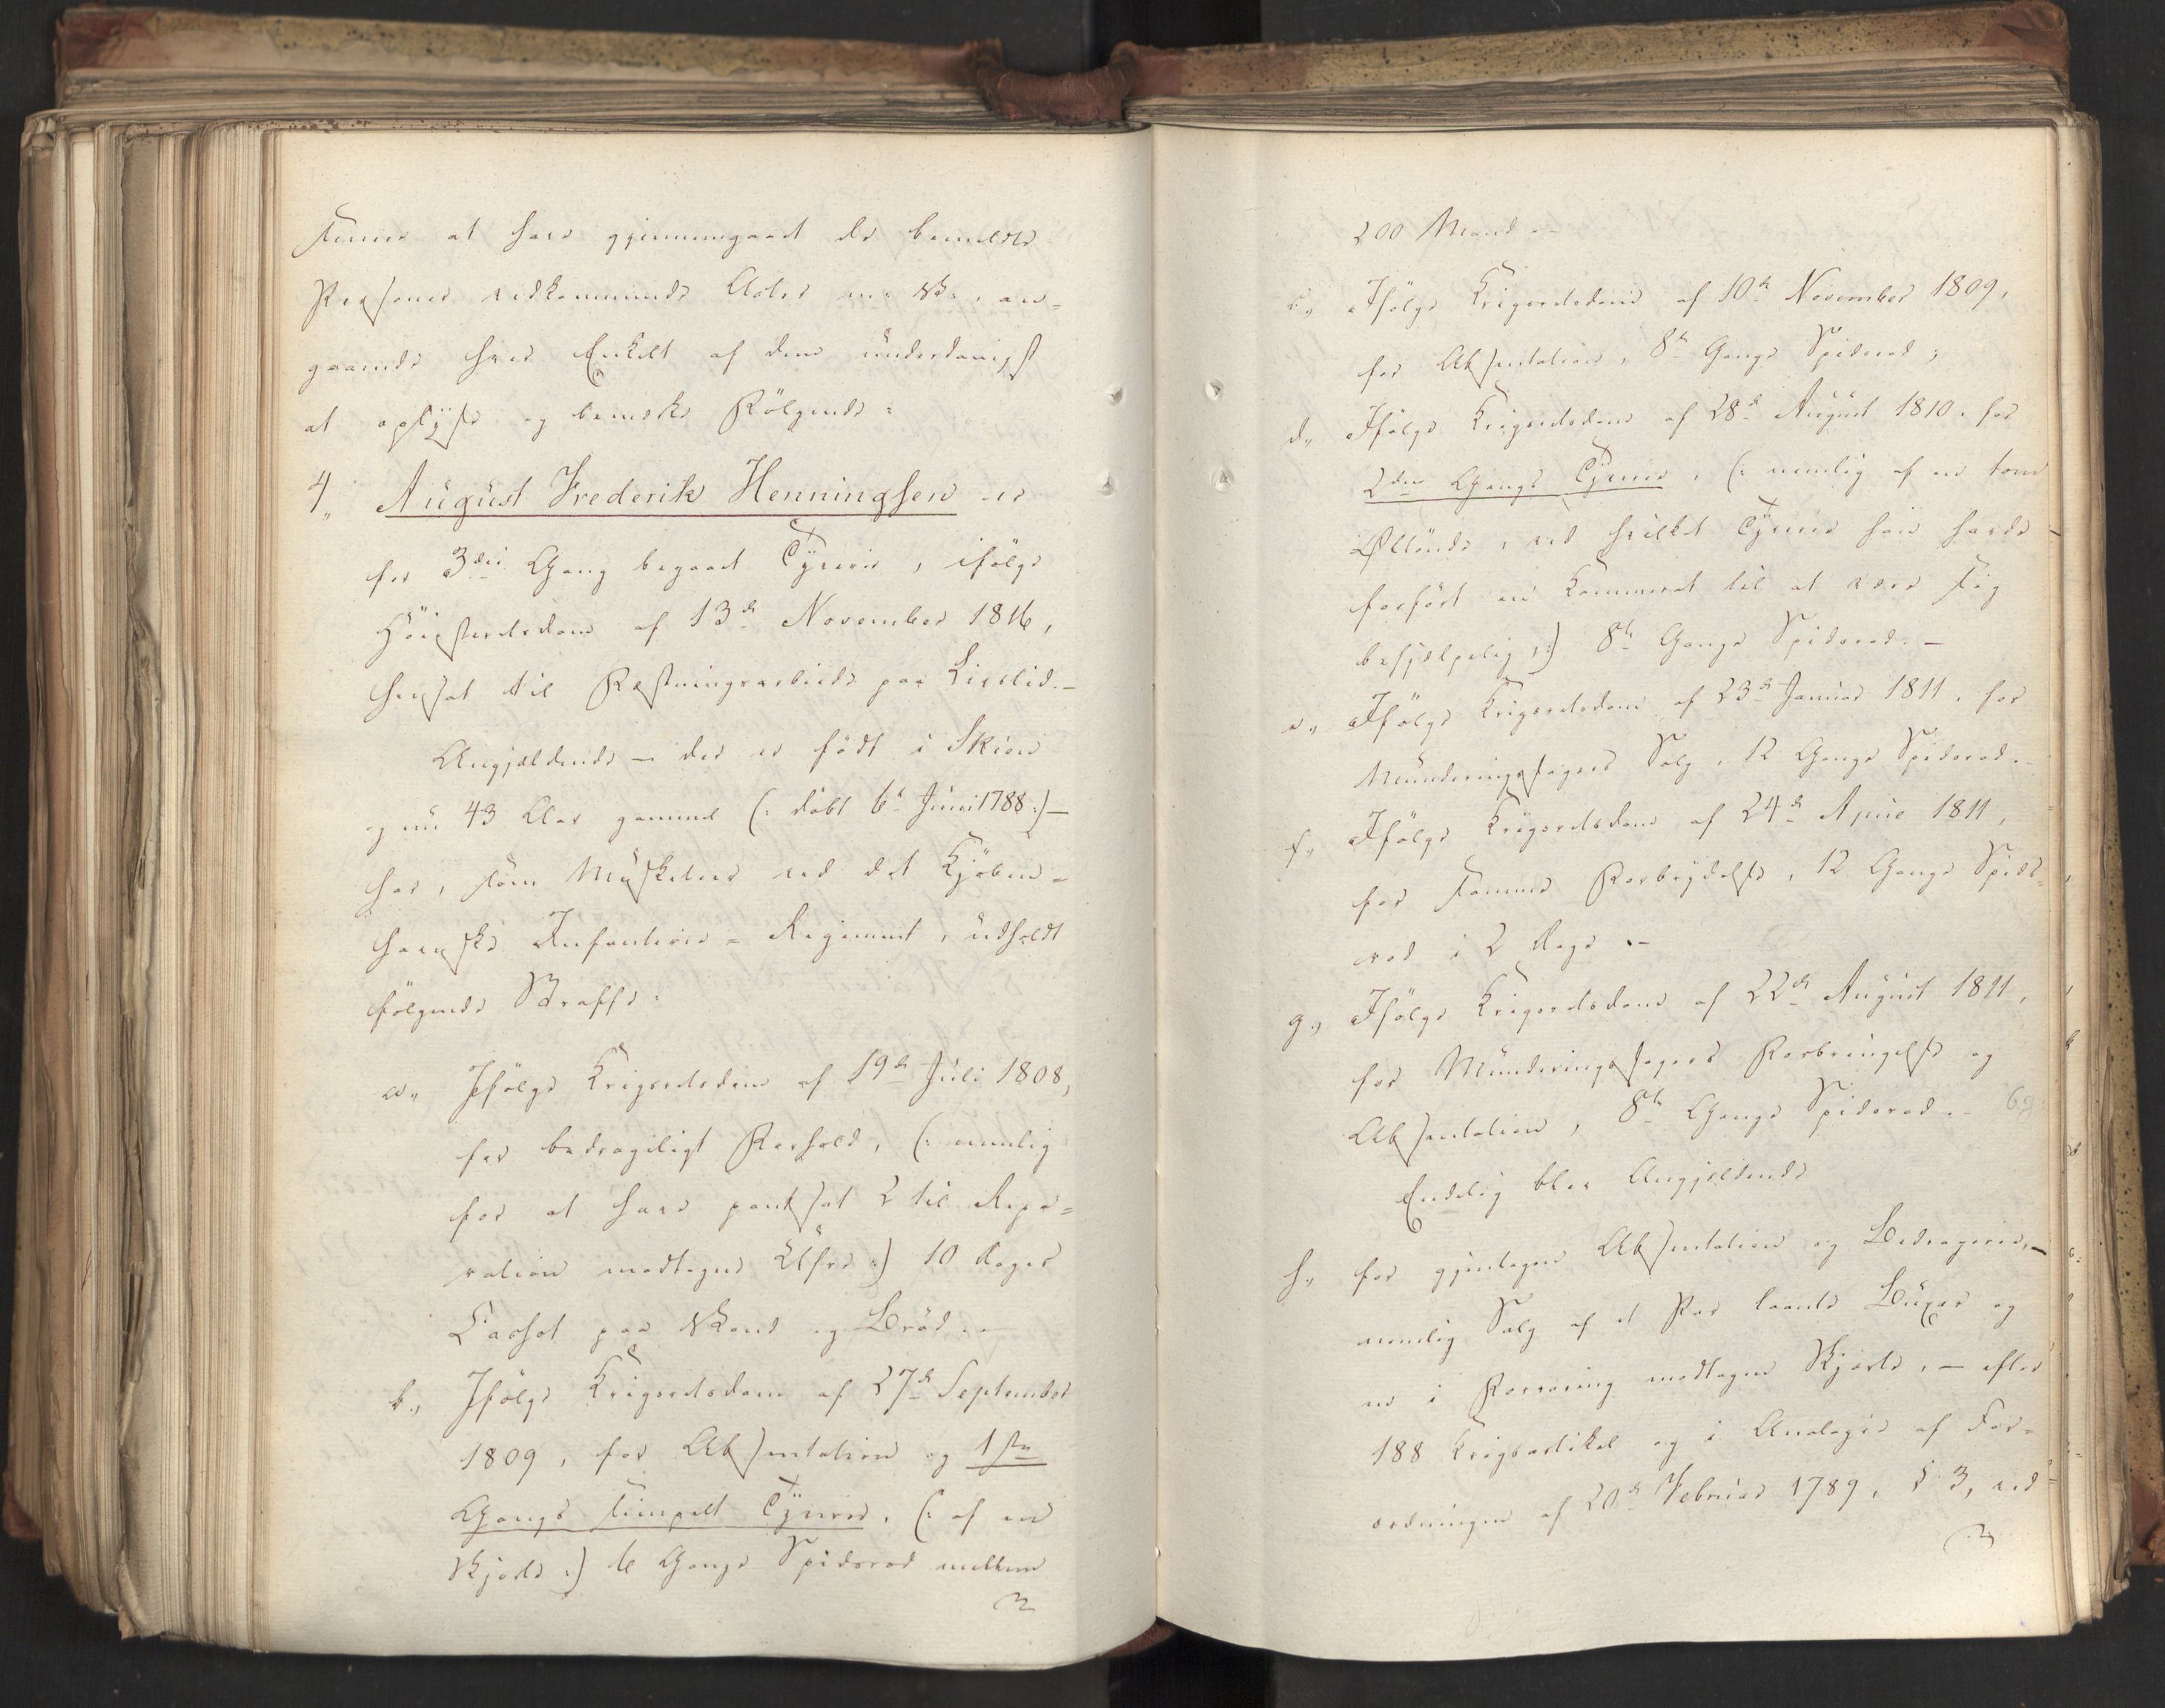 kunne at have gjennemgaaet de bemeldte
Personer vedkommende Acter m: V:, an-
gaaende hver Enkelt af dem underdanigst
at oplyse og bemærke Følgende:
4, August Frederik Henningsen er
for 3die Gang begaaet Tyverie, ifølge
Høiesteretsdom af 13de November 1816,
hensat til Fæstningsarbeide paa Livstid.-
Angjældende - der er født i Skien
og nu 43 Aar gammel (: døbt 6te Juni 1788 :) -
har, som Musketeer ved det Kjøben-
havnske Infanterie-Regiment, udholdt
følgende Straffe:
a, Ifølge Krigsretsdom af 19de Juli 1808,
for bedrageligt Forhold, (: nemlig
for at have pantsat 2 til Repa-
ration modtagne Uhre :) 10 Dages
Carhol paa Vand og Brød. -
b., Ifølge Krigsretsdom af 27de September
1809, for Absentation og 1ste
Gangs simpelt Tyverie, (: af en
Skjorte :) 6 Gange Spidsrod mellem
200 Mand. -
c., Ifølge Krigsretsdom af 10de November 1809,
for Absentation, 8te Gange Spidsrod;
d., Ifølge Krigsretsdom af 28de August 1810, for
2den Gangs Tyverie, (: nemlig af en tom
Øltønde, ved hvilket Tyverie han havde
forført en Kammerat til at være sig
behjælpelig, :) 8te Gange Spidsrod. -
e., Ifølge Krigsretsdom af 23de Januar 1811, for
Munderingssagers Salg, 12 Gange Spidsrod. -
f., Ifølge Krigsretsdom af 24de April 1811,
for samme Forbrydelse, 12 Gange Spids-
rod i 2 Dage. -
g., Ifølge Krigsretsdom af 22de August 1811,
for Munderingssagers Forbringelse og
Absentation, 8te Gange Spidsrod. -
Endelig blev Angjældende
h., for gjentagen Absentation og Bedragerie, -
nemlig Salg af et Par laante Buxer og
en i Forvaring modtagen Skjorte, - efter
188 Krigsartikel og i Analogie af For-
ordningen af 20de Februar 1789, § 3, ved